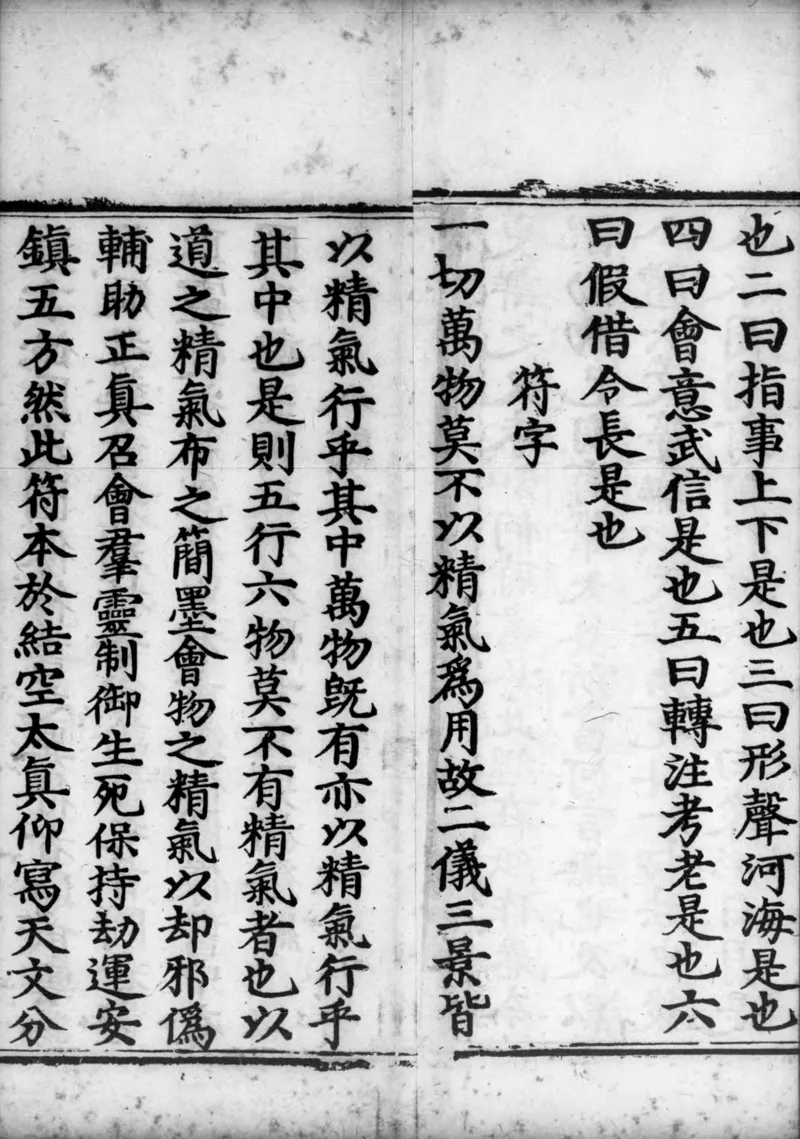 也二曰指事上下是也三曰形聲河海是也
四曰會意武信是也五曰轉注考老是也六
曰假借令長是也
符字
一切萬物莫不以精氣爲用故二儀三景皆
以精氣行乎其中萬物旣有亦以精氣行乎
其中也是則五行六物莫不有精氣者也以
道之精氣布之簡墨會物之精氣以却邪僞
輔助正眞召會羣靈制御生死保持劫運安
鎮五方然此符本於結空太眞仰寫天文分